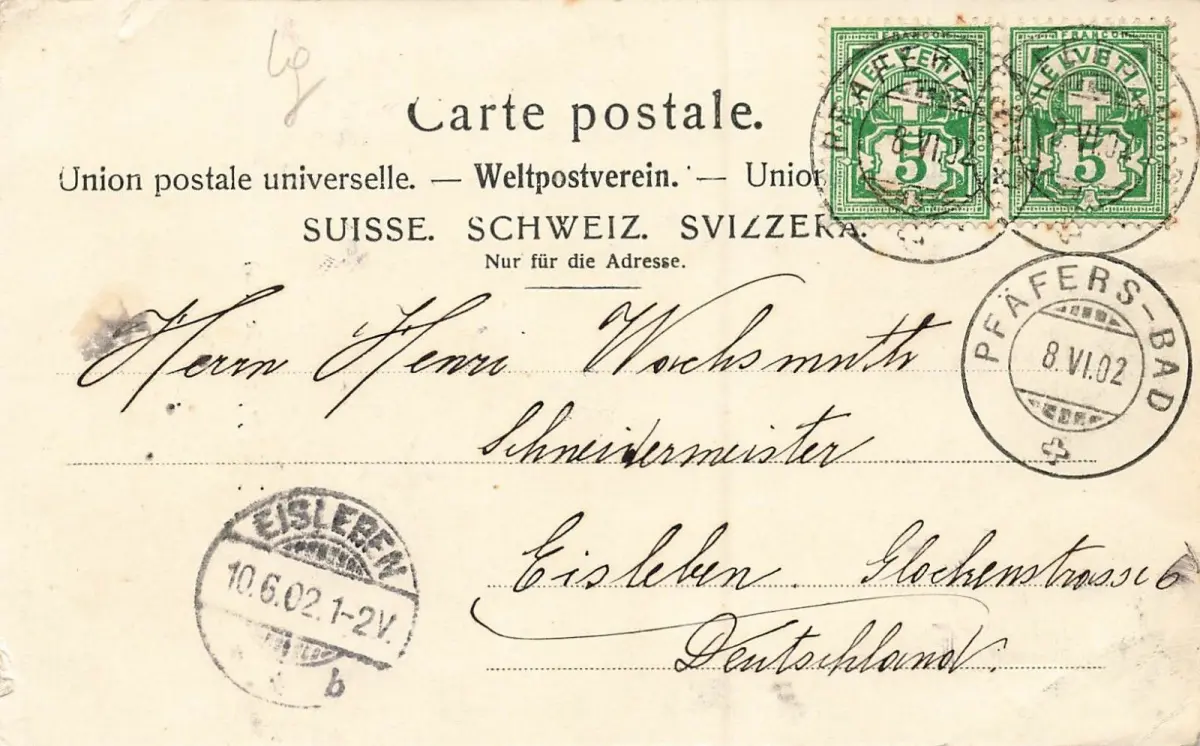 Carte postale.
Union postale universelle. — Weltpostverein. — Union
SUISSE. SCHWEIZ. SVIZZERA.
Nur für die Adresse.
FRANCO HELVETIA FRANCO 5
FRANCO HELVETIA FRANCO 5
PFÄFERS-BAD 8.VI.02
Herrn Henri Wachsmuth
Schneidermeister
Eisleben. Glockenstrasse 6
Deutschland.
EISLEBEN
10.6.02.1-2V.
b